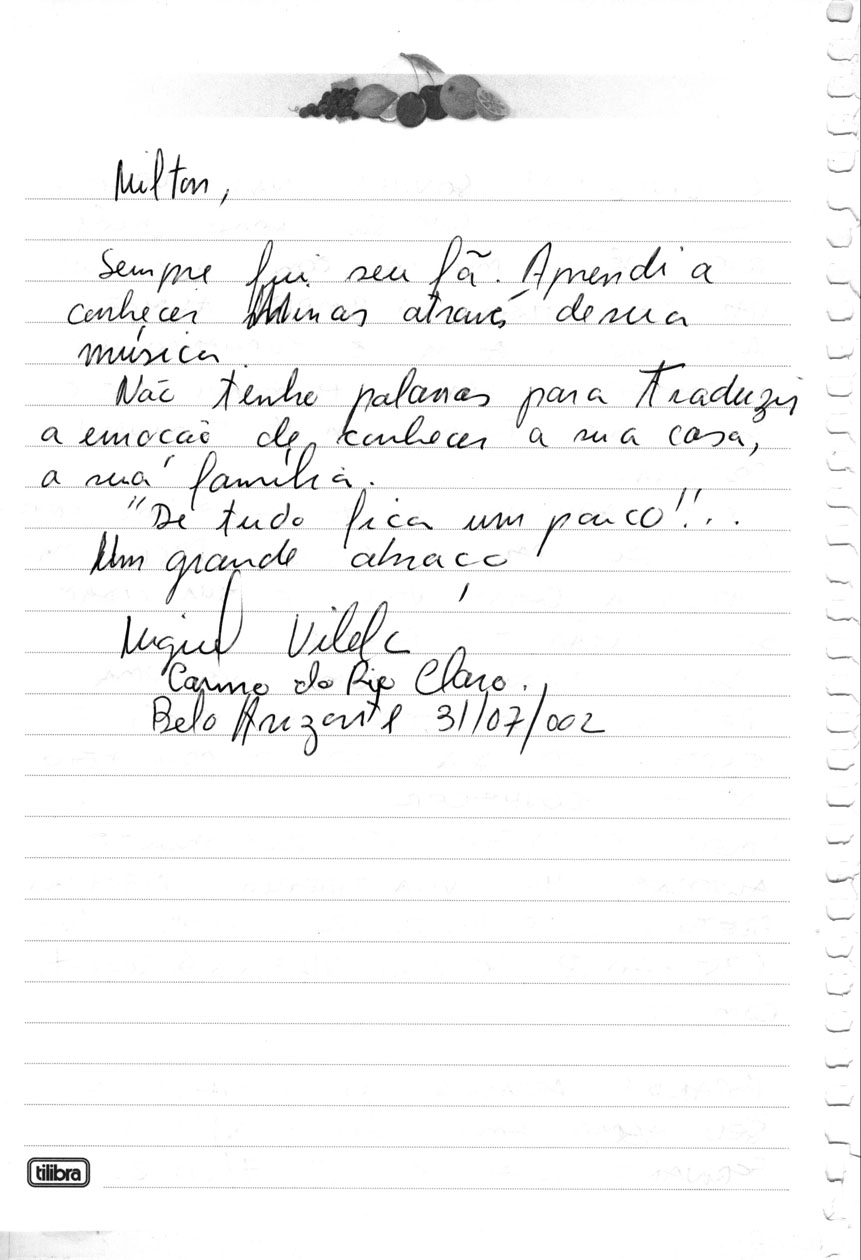 Milton,
Sempre fui seu fã. Aprendi a
conhecer Minas através de sua
música.
Não tenho palavras para traduzir
a emoção de conhecer a sua casa,
a sua família.
"De tudo fica um pouco"...
Um grande abraço
Miguel Vilela
Carmo do Rio Claro.
Belo Horizonte 31/07/002
tilibra